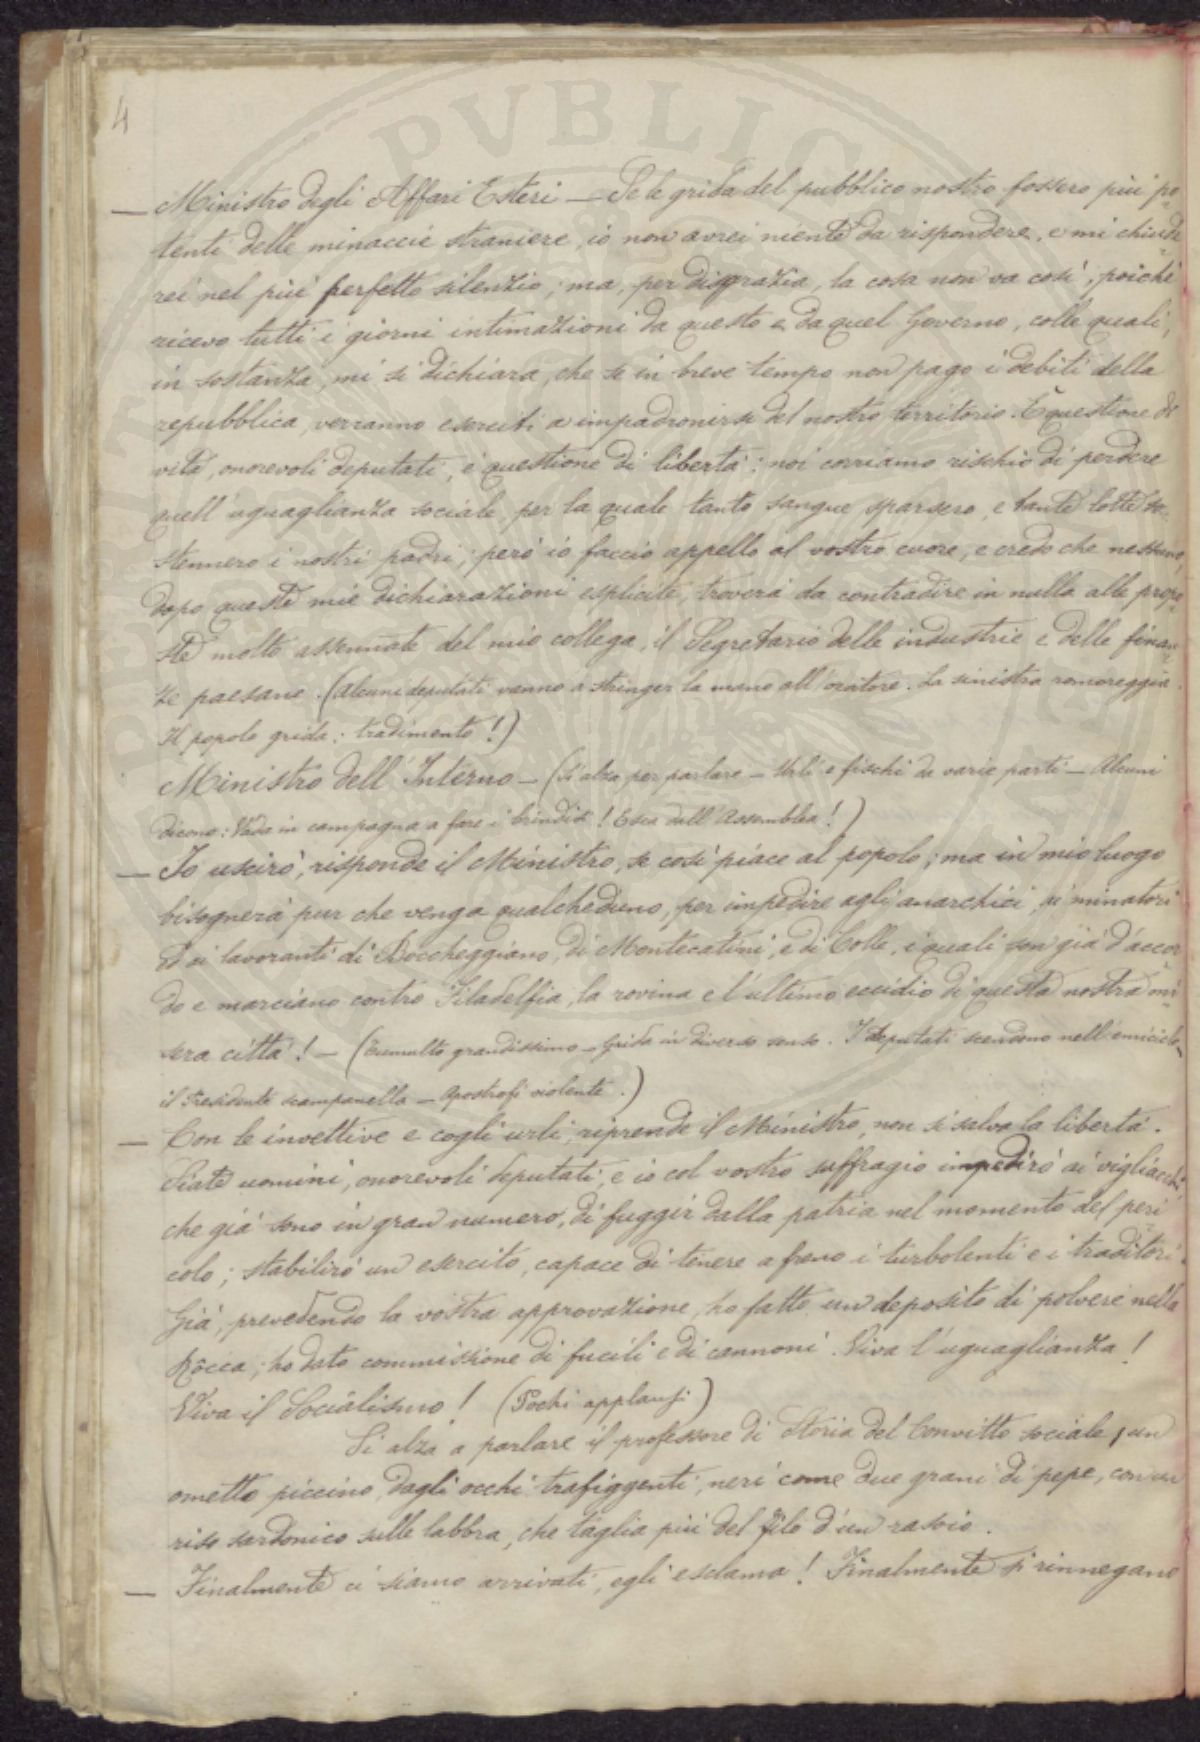 4
— Ministro degli Affari Esteri — Se le grida del pubblico nostro fossero più po
tenti delle minaccie straniere, io non avrei niente da rispondere, e mi chiude
rei nel più perfetto silenzio; ma, per disgrazia, la cosa non va così; poichè
ricevo tutti i giorni intimazioni da questo e da quel Governo, colle quali,
in sostanza, mi si dichiara, che se in breve tempo non pago i debiti della
repubblica, verranno eserciti a impadronirsi del nostro territorio. È questione di
vita, onorevoli deputati, è questione di libertà: noi corriamo rischio di perdere
quell'uguaglianza sociale, per la quale tanto sangue sparsero, e tante lotte so
stennero i nostri padri; però io faccio appello al vostro cuore, e credo che nessuno,
dopo queste mie dichiarazioni esplicite, troverà da contradire in nulla alle propo
ste molto assennate del mio collega, il Segretario delle industrie e delle finan
ze paesane. (Alcuni deputati vanno a stringer la mano all'oratore. La sinistra romoreggia.
Il popolo grida: tradimento!)
Ministro dell'Interno — (Si alza per parlare — Urli e fischi da varie parti — Alcuni
dicono: Vada in campagna a fare i brindisi! Esca dall'Assemblea!)
— Io uscirò, risponde il Ministro, se così piace al popolo; ma in mio luogo
bisognerà pur che venga qualcheduno, per impedire agli anarchici, ai minatori
ed ai lavoranti di Boccheggiano, di Montecatini, e di Colle, i quali son già d'accor
do e marciano contro Filadelfia, la rovina e l'ultimo eccidio di questa nostra mi
sera città! — (Tumulto grandissimo — Grida in diverso senso. I deputati scendono nell'emiciclo —
il Presidente scampanella — Apostrofi violente.)
— Con le invettive e cogli urli, riprende il Ministro, non si salva la libertà.
Siate uomini, onorevoli deputati, e io col vostro suffragio impedirò ai vigliacchi,
che già sono in gran numero, di fuggir dalla patria nel momento del peri
colo; stabilirò un esercito, capace di tenere a freno i turbolenti e i traditori.
Già, prevedendo la vostra approvazione, ho fatto un deposito di polvere nella
Rocca; ho dato commissione di fucili e di cannoni. Viva l'uguaglianza!
Viva il Socialismo! (Pochi applausi)
Si alza a parlare il professore di Storia del Convitto sociale, un
ometto piccino, dagli occhi trafiggenti, neri come due grani di pepe, con un
riso sardonico sulle labbra, che taglia più del filo d'un rasoio.
— Finalmente ci siamo arrivati, egli esclama! Finalmente si rinnegano